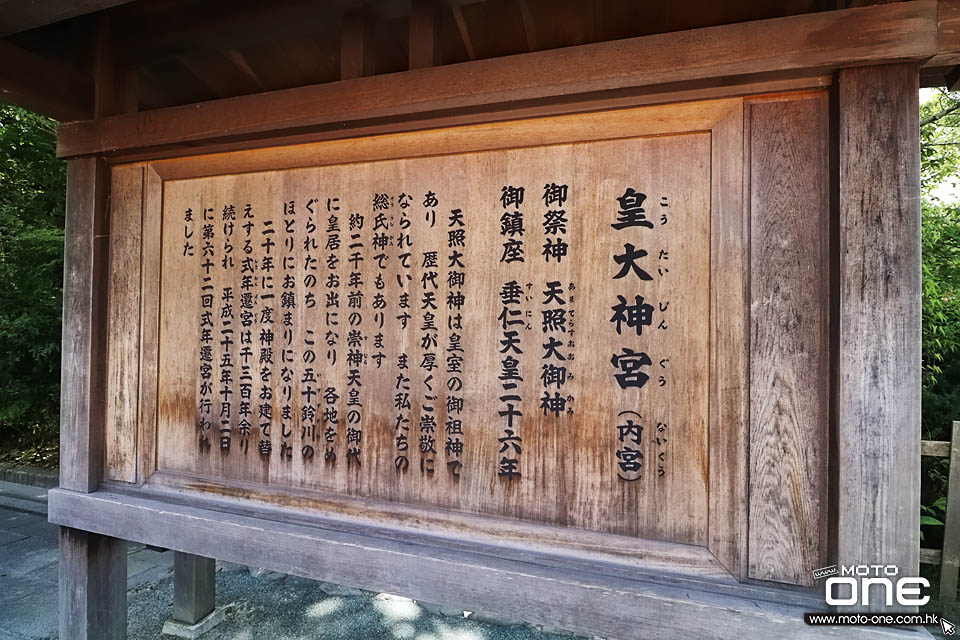 皇大神宮（内宮）
こうたいじんぐう
ないくう
御祭神　天照大御神
あまてらすおおみかみ
御鎮座　垂仁天皇二十六年
すいにん
天照大御神は皇室の御祖神で
あり　歴代天皇が厚くご崇敬に
なられています　また私たちの
総氏神でもあります
約二千年前の崇神天皇の御代
に皇居をお出になり　各地をめ
ぐられたのち　この五十鈴川の
ほとりにお鎮まりになりました
二十年に一度神殿をお建て替
えする式年遷宮は千三百年余り
続けられ　平成二十五年十月二日
に第六十二回式年遷宮が行われ
ました
www.
MOTO
ONE
www.moto-one.com.hk